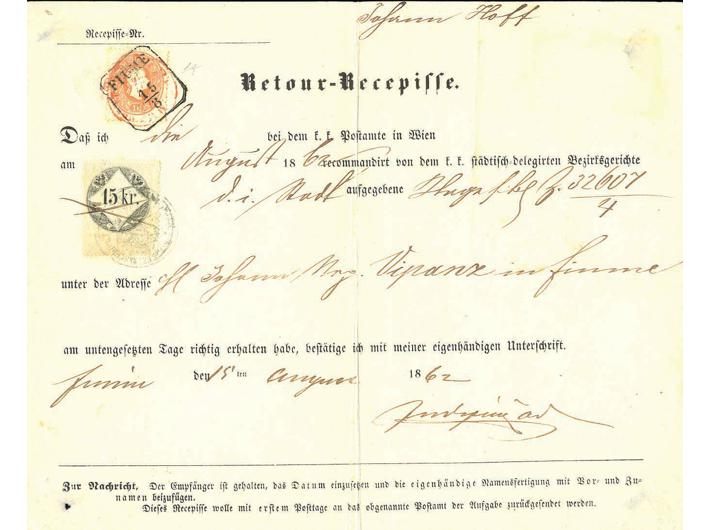 Johann Hoff
Recepisse-Nr.
FIUME
15
8
Retour-Recepisse.
Daß ich die bei dem k. k. Postamte in Wien
am August 1862 recommandirt von dem k. k. städtisch-delegirten Bezirksgerichte
15 kr.
d. i. Stadt aufgegebene Z. 32607
4
unter der Adresse Johann Nep. Vipanz in Fiume
am untengesetzten Tage richtig erhalten habe, bestätige ich mit meiner eigenhändigen Unterschrift.
Fiume den 15 ten August 1862
Zur Nachricht. Der Empfänger ist gehalten, das Datum einzusetzen und die eigenhändige Namensfertigung mit Vor- und Zu-
namen beizufügen.
Dieses Recepisse wolle mit erstem Posttage an das obgenannte Postamt der Aufgabe zurückgesendet werden.